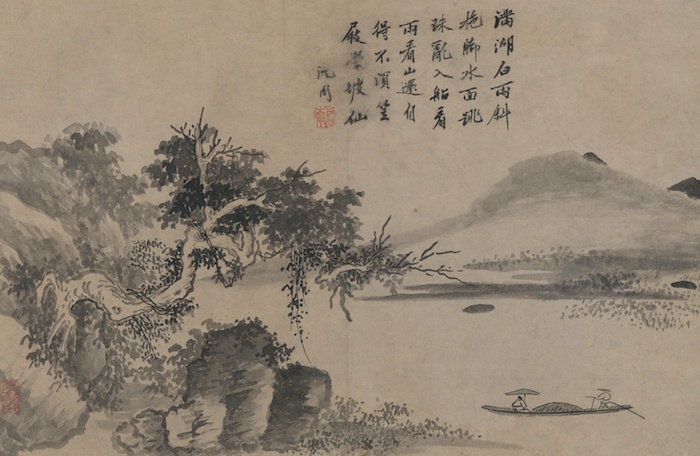 滿湖白雨斜
拖脚水面跳
珠亂入船看
雨看山還自
得不須笠
屐學坡仙
沈周